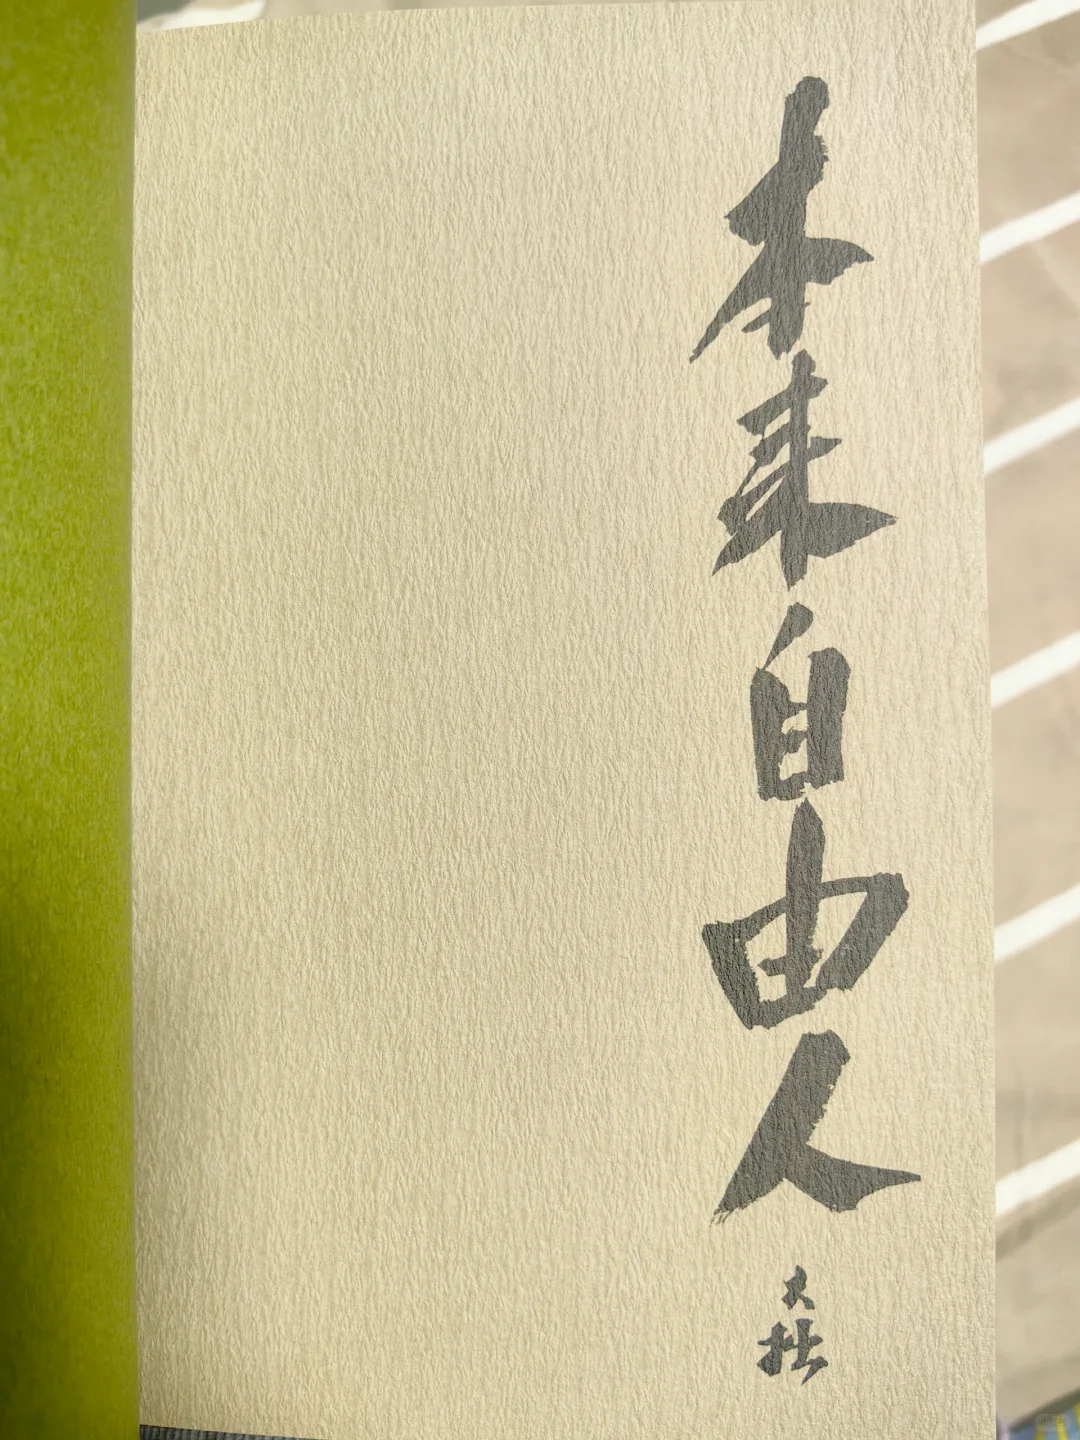 本来自由人
大拙